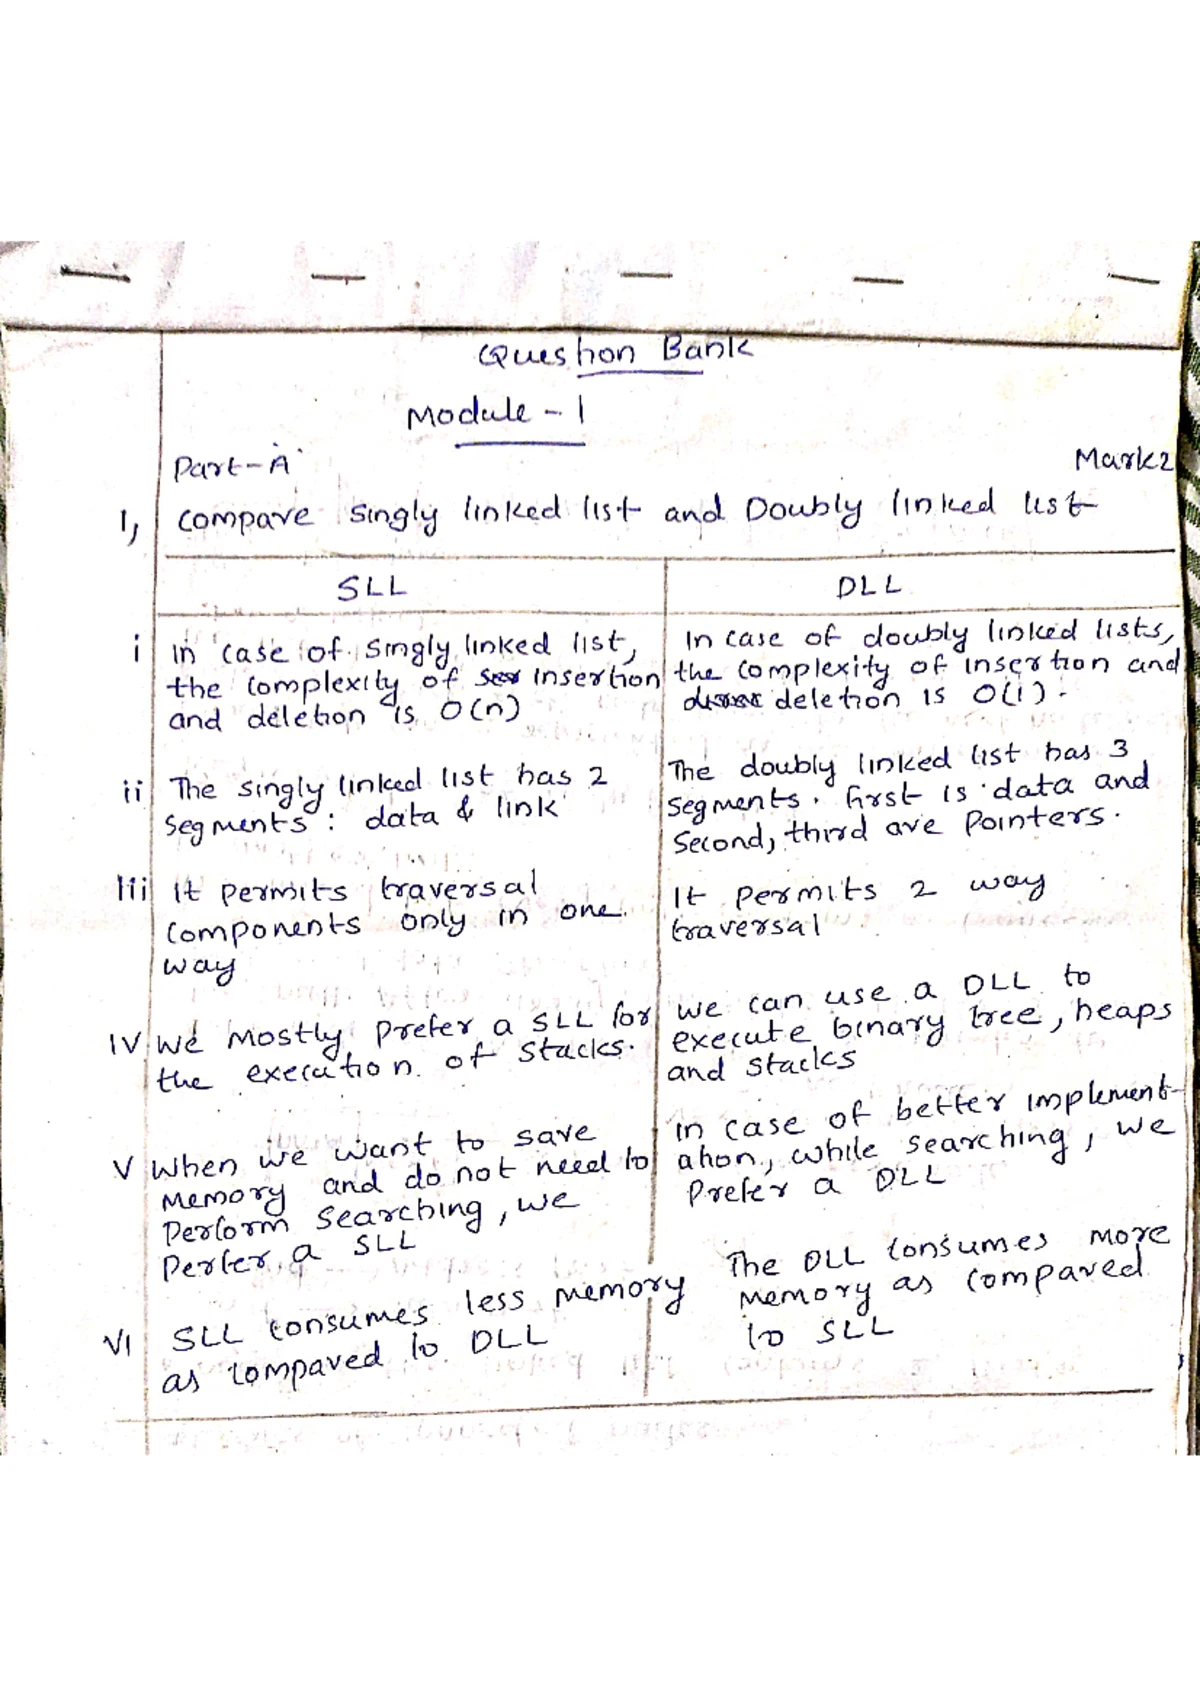 Question Bank
Module - 1
Part-A
Mark2
1, Compare singly linked list and Doubly linked list
SLL
DLL
i In case of singly linked list,
the complexity of insertion
and deletion is O(n)
In case of doubly linked lists,
the complexity of insertion and
deletion is O(1).
ii The singly linked list has 2
segments: data & link
The doubly linked list has 3
segments. first is data and
second, third are pointers.
iii It permits traversal
components only in one
way
It permits 2 way
traversal
iv we mostly prefer a SLL for
the execution of stacks.
we can use a DLL to
execute binary tree, heaps
and stacks
v when we want to save
memory and do not need to
perform searching, we
perfer a SLL
in case of better implement-
ation, while searching, we
prefer a DLL
vi SLL consumes less memory
as compared to DLL
The DLL consumes more
memory as compared
to SLL